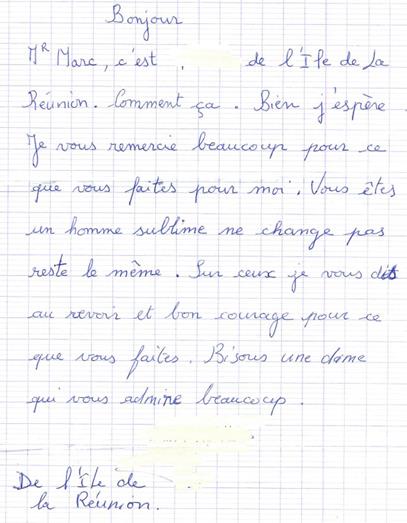 Bonjour
Mr Marc, c'est . de l'Ile de La
Réunion. Comment ça . Bien j'espère.
Je vous remercie beaucoup pour ce
que vous faites pour moi. Vous êtes
un homme sublime ne change pas
reste le même. Sur ceux je vous dits
au revoir et bon courage pour ce
que vous faites. Bisous une dame
qui vous admire beaucoup.
De l'Ile de
la Réunion.